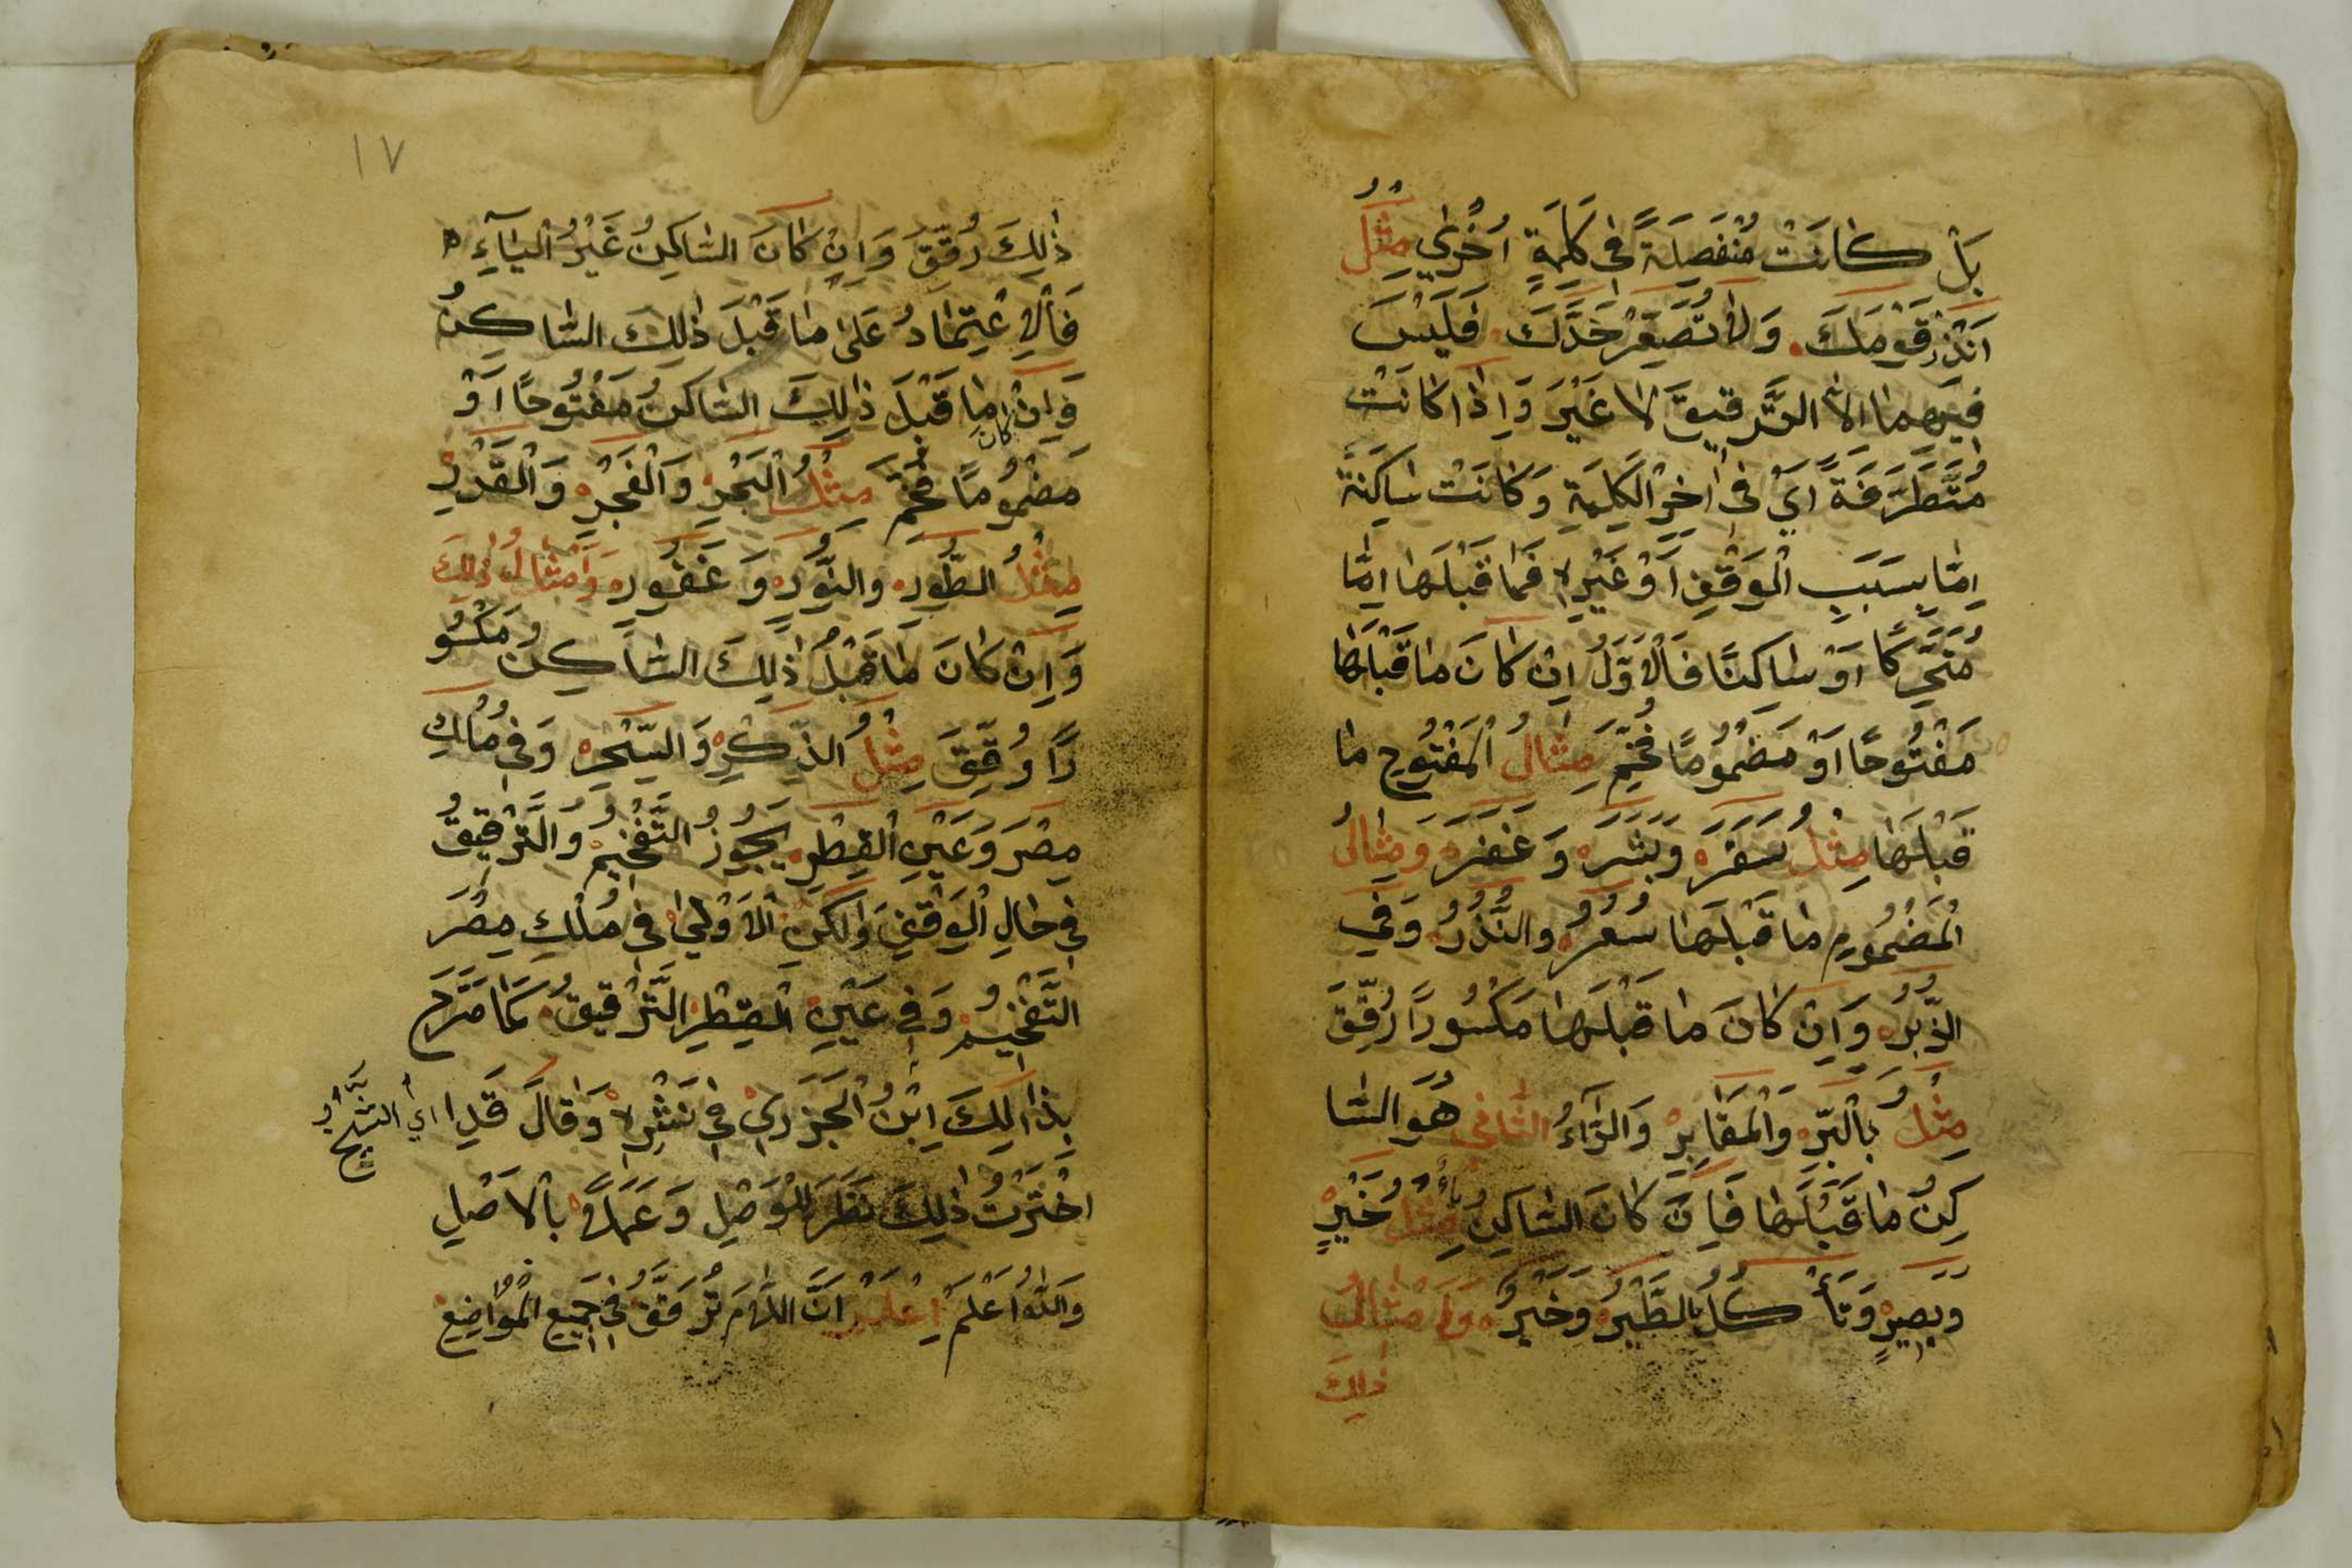 بَلْ كَانَتْ مُنْفَصِلَةً فِي كَلِمَةٍ اُخْرٰي مِثْلُ
اَنْذِرْ قَوْمَكَ . وَلَا تُصَعِّرْ خَدَّكَ . فَلَيْسَ
فِيهِمَا الاَّ التَّرقيقَ لَا غَيْرَ وَاِذَا كَانَتْ
مُتَطَرِّفَةً اَيْ فِي اٰخِرِ الْكَلِمَةِ وَكَانَتْ سَاكِنَةً
اِمَّا بِسَبَبِ الْوَقْفِ اَوْ غَيْرِهِ فَمَا قَبْلَهَا اِمَّا
مُتَحَرِّكًا اَوْ سَاكِنًا فَالْاَوَّلُ اِنْ كَانَ مَا قَبْلَهَا
مَفْتُوحًا اَوْ مَضْمُومًا فُخِّمَ مِثَالُ الْمَفْتُوحِ مَا
قَبْلَهَا مِثْلُ سَقَرَ وَبَشَرَ وَغَفَرَ وَمِثَالُ
الْمَضْمُومِ مَا قَبْلَهَا سُعُرُ وَالنُّذُرُ وَفِي
الزُّبُرِ وَاِنْ كَانَ مَا قَبْلَهَا مَكْسُورًا رُقِّقَ
مِثْلُ بِالْبِرِّ وَالْمَقَابِرِ وَالرَّاءُ الثَّانِي هُوَ السَّا
كِنُ مَا قَبْلَهَا فَاِنْ كَانَ السَّاكِنُ يَاءٌ مِثْلُ خَيْرٍ
وَبَصِيرٍ وَتَأْكُلُ الطَّيْرُ وَخَيْرُ وَاَمْثَالُ
ذٰلِكَ
١٧
ذٰلِكَ رُقِّقَ وَاِنْ كَانَ السَّاكِنُ غَيْرُ الْيَاۤءِ
فَالاِعْتِمَادُ عَلٰى مَا قَبْلَ ذٰلِكَ السَّاكِنُ
فَاِنْ كَانَ مَا قَبْلَ ذٰلِكَ السَّاكِنُ مَفْتُوحًا اَوْ
مَضْمُومًا فُخِّمَ مِثْلُ الْبَحْرِ وَالْفَجْرِ وَالْقَدْرِ
مِثْلُ الطُّورِ وَالنُّورِ وَغَفُورٍ وَاَمْثَالُ ذٰلِكَ
وَاِنْ كَانَ مَا قَبْلُ ذٰلِكَ السَّاكِنُ مَكْسُو
رًا رُقِّقَ مِثْلُ الذِّكْرِ وَالسِّحْرِ وَفِي مُلْكِ
مِصْرَ وَعَيْنِ الْقِطْرِ يَجُوزُ التَّفْخِيمُ وَالتَّرْقِيقُ
فِي حَالِ الْوَقْفِ وَلَكِنِ الْاَوْلٰى فِي مُلْكِ مِصْرَ
التَّفْخِيمُ وَفِي عَيْنِ الْقِطْرِ التَّرْقِيقُ كَمَا صَرَّحَ
بِذَالِكَ اِبْنُ الْجَزَرِيْ فِي نَشْرِهِ وَقَالَ قَدِا اَيْ الشَّيْخُ
اخْتَرْتُ ذٰلِكَ نَظَرَ لِلْوَصْلِ وَعَمَلاً بِالْاَصْلِ
وَاللهُ اَعْلَمْ اِعْلَمْ اَنَّ اللاَّمَ تُرَقَّقُ فِي جَمِيعِ الْمَوَاضِعِ